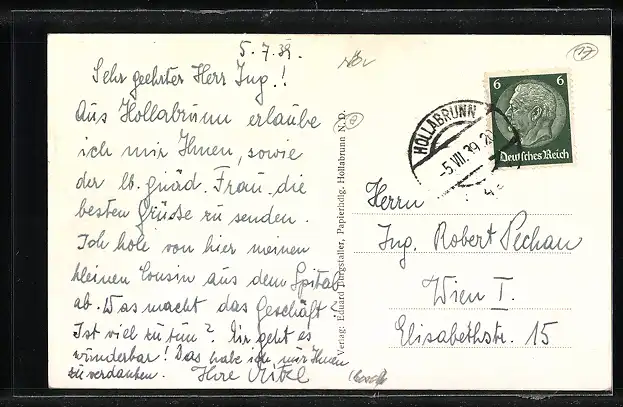 5.7.39.
Sehr geehrter Herr Ing.!
Aus Hollabrunn erlaube
ich mir Ihnen, sowie
der lb. gnäd. Frau die
besten Grüsse zu senden.
Ich hole von hier meinen
kleinen Cousin aus dem Spital
ab. Was macht das Geschäft?
Ist viel zu tun? Mir geht es
wunderbar! Das habe ich mir Ihnen
zu verdanken. Ihre
Verlag: Eduard Burgstaller, Papierhdlg. Hollabrunn N. D.
HOLLABRUNN
-5.VII.39.20
6 6
Deutsches Reich
Herrn
Ing. Robert Pechau
Wien I.
Elisabethstr. 15